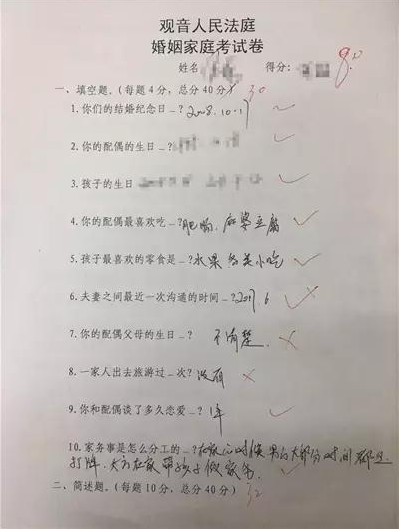 观音人民法庭
婚姻家庭考试卷
姓名 得分: 80
一、填空题。(每题4分,总分40分) 30
1.你们的结婚纪念日_?2008.10.17
2.你的配偶的生日_?
3.孩子的生日
4.你的配偶最喜欢吃_?肥肠、麻婆豆腐
5.孩子最喜欢的零食是_?水果 各类小吃
6.夫妻之间最近一次沟通的时间_?2017.6
7.你的配偶父母的生日_? 不清楚.
8.一家人出去旅游过_次?没有
9.你和配偶谈了多久恋爱_? 1年
10.家务事是怎么分工的_?在家的时候 男的大部分时间都在
打牌、女的在家带孩子做家务
二、简述题。(每题10分,总分40分) 32